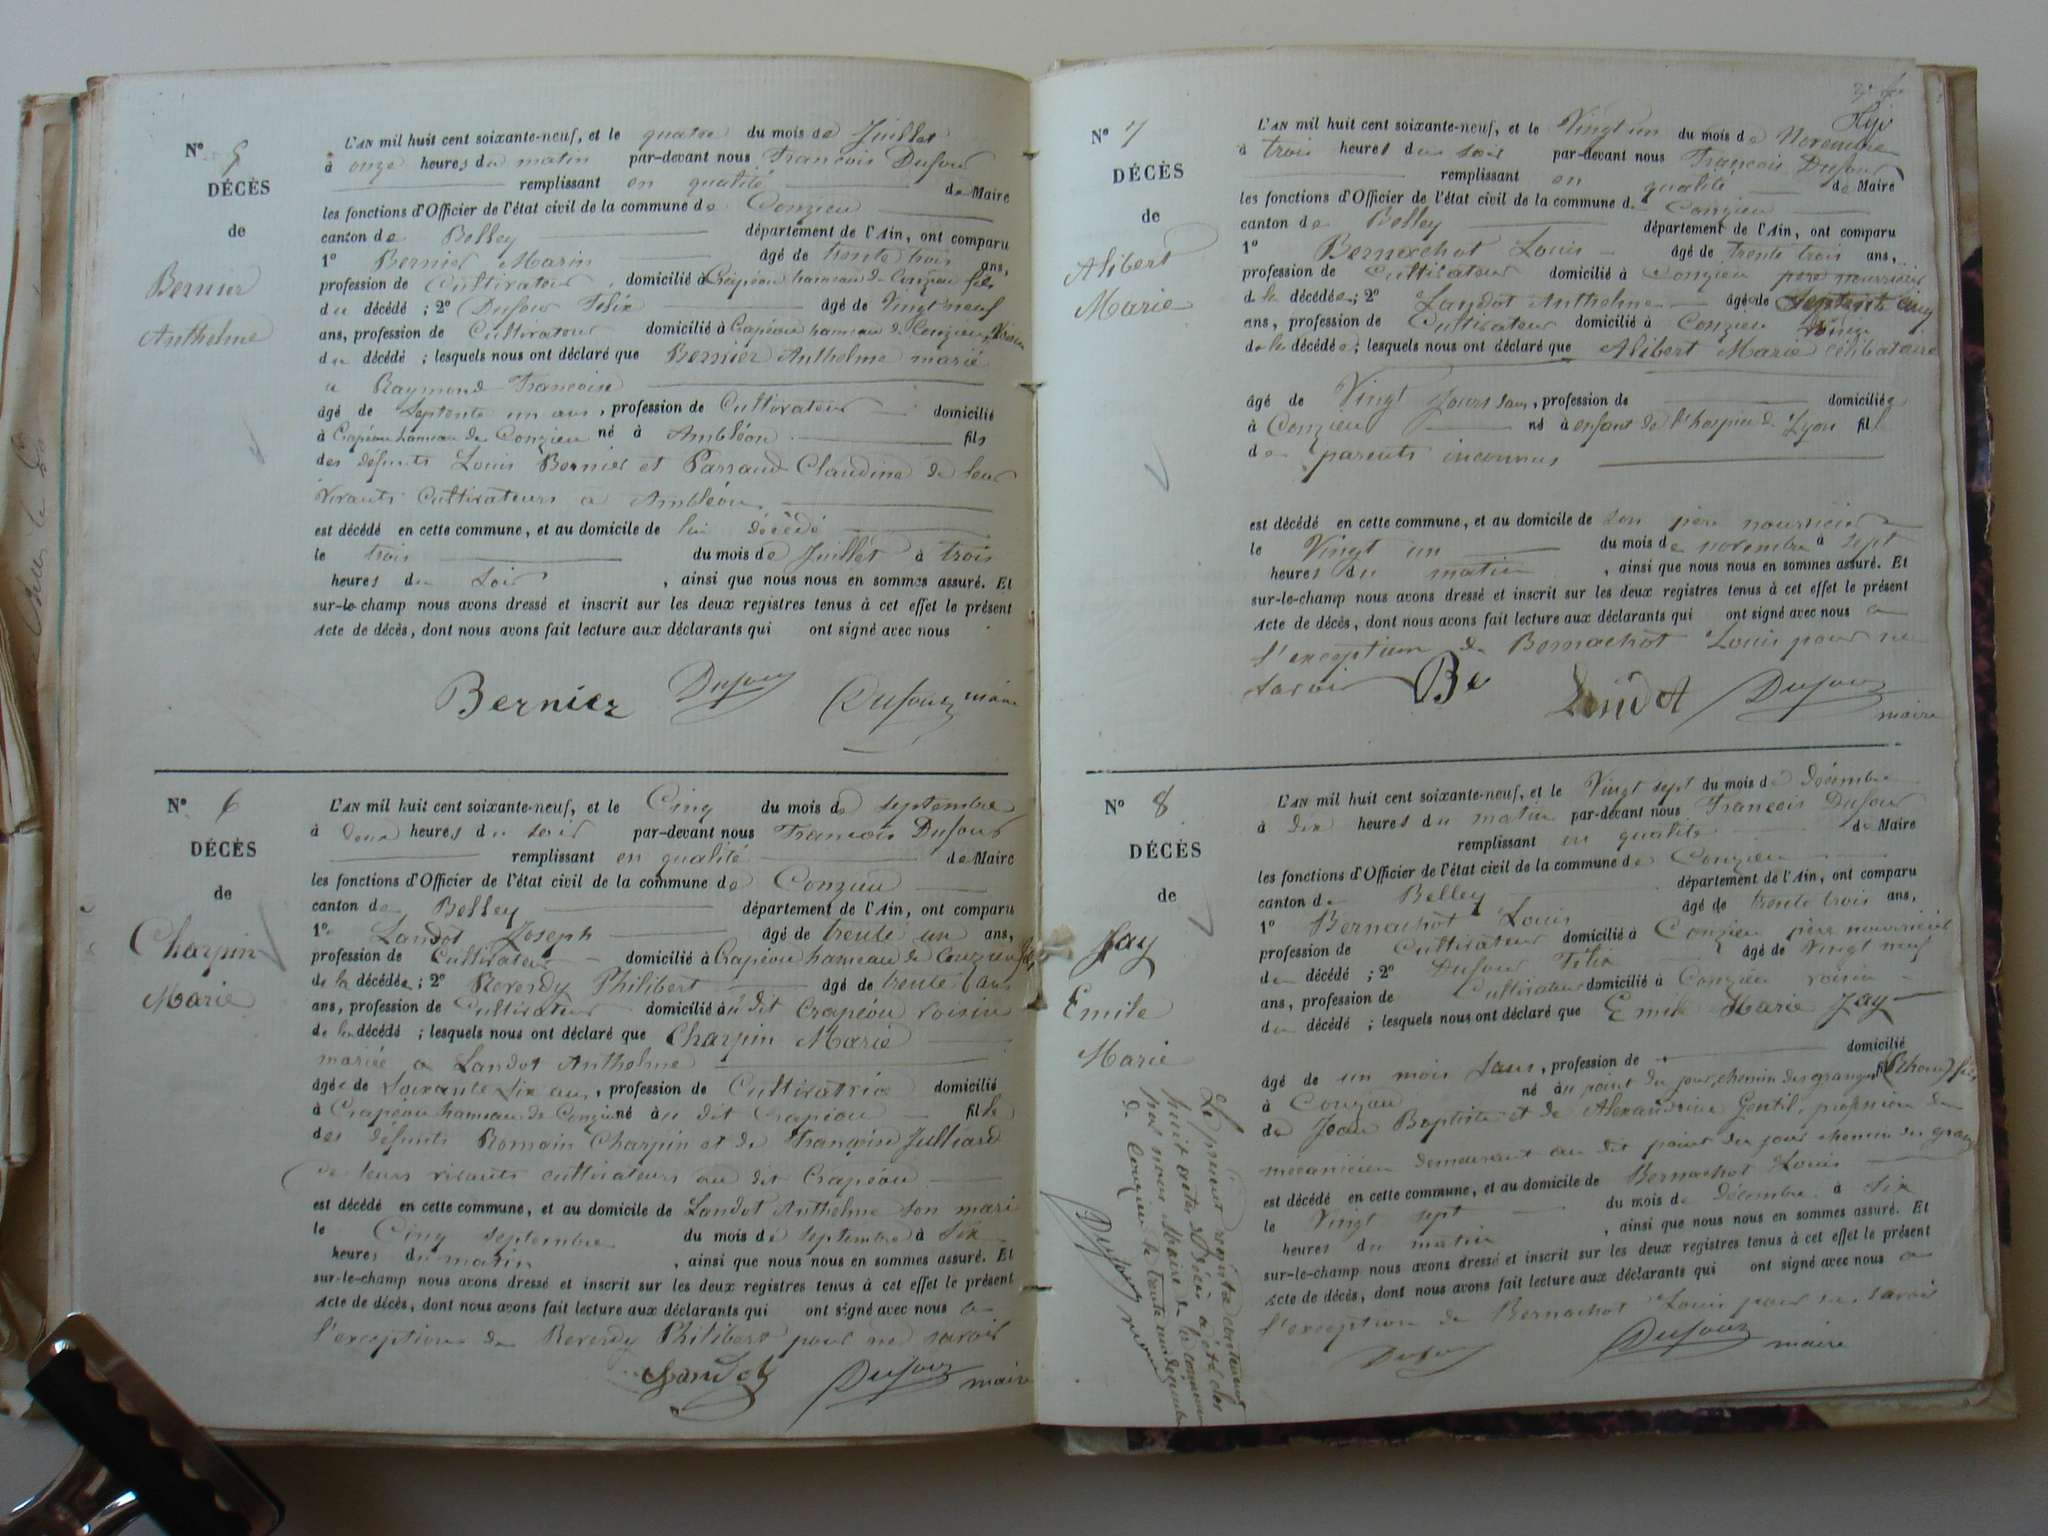 N° 5
DÉCÈS
de
Bernier
Anthelme
L'AN mil huit cent soixante-neuf, et le quatre du mois de Juillet
à onze heures du matin par-devant nous François Dufour
remplissant en qualité de Maire
les fonctions d'Officier de l'état civil de la commune de Conzieu
canton de Belley département de l'Ain, ont comparu
1° Bernier Marin âgé de trente trois ans,
profession de Cultivateur domicilié à Crapéou hameau de Conzieu fils
du décédé ; 2° Dufour Félix âgé de vingt neuf
ans, profession de Cultivateur domicilié à Crapéou hameau de Conzieu, Voisin
du décédé ; lesquels nous ont déclaré que Bernier Anthelme marié
a Raymond Françoise
âgé de Septente un ans, profession de Cultivateur domicilié
à Crapéou hameau de Conzieu né à Ambléon fils
des défunts Louis Bernier et Parraud Claudine de leur
vivants Cultivateurs a Ambléon
est décédé en cette commune, et au domicile de lui décédé
le trois du mois de Juillet à trois
heures du soir, ainsi que nous nous en sommes assuré. Et
sur-le-champ nous avons dressé et inscrit sur les deux registres tenus à cet effet le présent
Acte de décès, dont nous avons fait lecture aux déclarants qui ont signé avec nous
Bernier Dufour Dufour maire
N° 6
DÉCÈS
de
Charpin
Marie
L'AN mil huit cent soixante-neuf, et le Cinq du mois de septembre
à deux heures du soir par-devant nous François Dufour
remplissant en qualité de Maire
les fonctions d'Officier de l'état civil de la commune de Conzieu
canton de Belley département de l'Ain, ont comparu
1° Landot Joseph âgé de trente un ans,
profession de Cultivateur domicilié à Crapéou hameau de Conzieu fils
de la décédée ; 2° Reverdy Philibert âgé de trente
ans, profession de Cultivateur domicilié au dit Crapéou voisin
de la décédé ; lesquels nous ont déclaré que Charpin Marie
mariée a Landot Anthelme
âgée de soixante six ans, profession de Cultivatrice domicilié
à Crapéou hameau de Conzieu né au dit Crapéou fille
des défunts Romain Charpin et de Françoise Julliard
de leurs vivants cultivateurs au dit Crapéou
est décédé en cette commune, et au domicile de Landot Anthelme son mari
le Cinq septembre du mois de septembre à six
heures du matin, ainsi que nous nous en sommes assuré. Et
sur-le-champ nous avons dressé et inscrit sur les deux registres tenus à cet effet le présent
Acte de décès, dont nous avons fait lecture aux déclarants qui ont signé avec nous a
l'exception de Reverdy Philibert pour ne savoir
Landot Dufour maire
N° 7
DÉCÈS
de
Alibert
Marie
L'AN mil huit cent soixante-neuf, et le Vingt un du mois de Novembre
à trois heures du soir par-devant nous François Dufour
remplissant en qualité de Maire
les fonctions d'Officier de l'état civil de la commune de Conzieu
canton de Belley département de l'Ain, ont comparu
1° Bernachot Louis âgé de trente trois ans,
profession de Cultivateur domicilié à Conzieu père nourricier
de la décédée ; 2° Landot Anthelme âgé de septente cinq
ans, profession de Cultivateur domicilié à Conzieu voisin
de la décédée ; lesquels nous ont déclaré que Alibert Marie célibataire
âgé de Vingt Jours ans, profession de domiciliée
à Conzieu né à enfant de l'hospice de Lyon fil
de parents inconnus
est décédé en cette commune, et au domicile de son père nourricier
le Vingt un du mois de novembre à sept
heures du matin, ainsi que nous nous en sommes assuré. Et
sur-le-champ nous avons dressé et inscrit sur les deux registres tenus à cet effet le présent
Acte de décès, dont nous avons fait lecture aux déclarants qui ont signé avec nous a
l'exception de Bernachot Louis pour ne
savoir Be Landot Dufour
maire
N° 8
DÉCÈS
de
Jay
Emile
Marie
L'AN mil huit cent soixante-neuf, et le Vingt sept du mois de décembre
à dix heures du matin par-devant nous François Dufour
remplissant en qualité de Maire
les fonctions d'Officier de l'état civil de la commune de Conzieu
canton de Belley département de l'Ain, ont comparu
1° Bernachot Louis âgé de trente trois ans,
profession de Cultivateur domicilié à Conzieu père nourricier
du décédé ; 2° Dufour Félix âgé de vingt neuf
ans, profession de Cultivateur domicilié à Conzieu voisin
du décédé ; lesquels nous ont déclaré que Emile Marie Jay
âgé de un mois ans, profession de domicilié
à Conzieu né au point du jour, chemin des granges (Rhone) fils
de Jean Baptiste et de Alexandrine Gentil, profession de
mécanicien demeurant au dit point du jour chemin des granges
est décédé en cette commune, et au domicile de Bernachot Louis
le Vingt sept du mois de décembre à six
heures du matin, ainsi que nous nous en sommes assuré. Et
sur-le-champ nous avons dressé et inscrit sur les deux registres tenus à cet effet le présent
Acte de décès, dont nous avons fait lecture aux déclarants qui ont signé avec nous a
l'exception de Bernachot Louis pour ne savoir
Dufour Dufour maire
Le présent registre contenant
huit actes de Décès a été clos
par nous Maire de la commune
de Conzieu le trente un décembre
Dufour maire